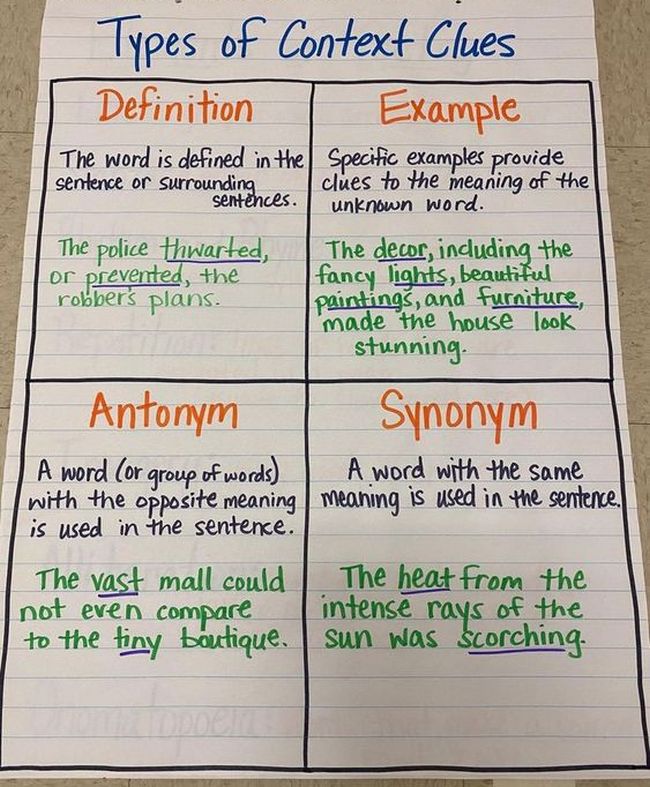 Types of Context Clues
Definition
The word is defined in the
sentence or surrounding
sentences.
The police thwarted,
or prevented, the
robber's plans.
Example
Specific examples provide
clues to the meaning of the
unknown word.
The decor, including the
fancy lights, beautiful
paintings, and furniture,
made the house look
stunning.
Antonym
A word (or group of words)
with the opposite meaning
is used in the sentence.
The vast mall could
not even compare
to the tiny boutique.
Synonym
A word with the same
meaning is used in the sentence.
The heat from the
intense rays of the
sun was scorching.
Onomatopoeia